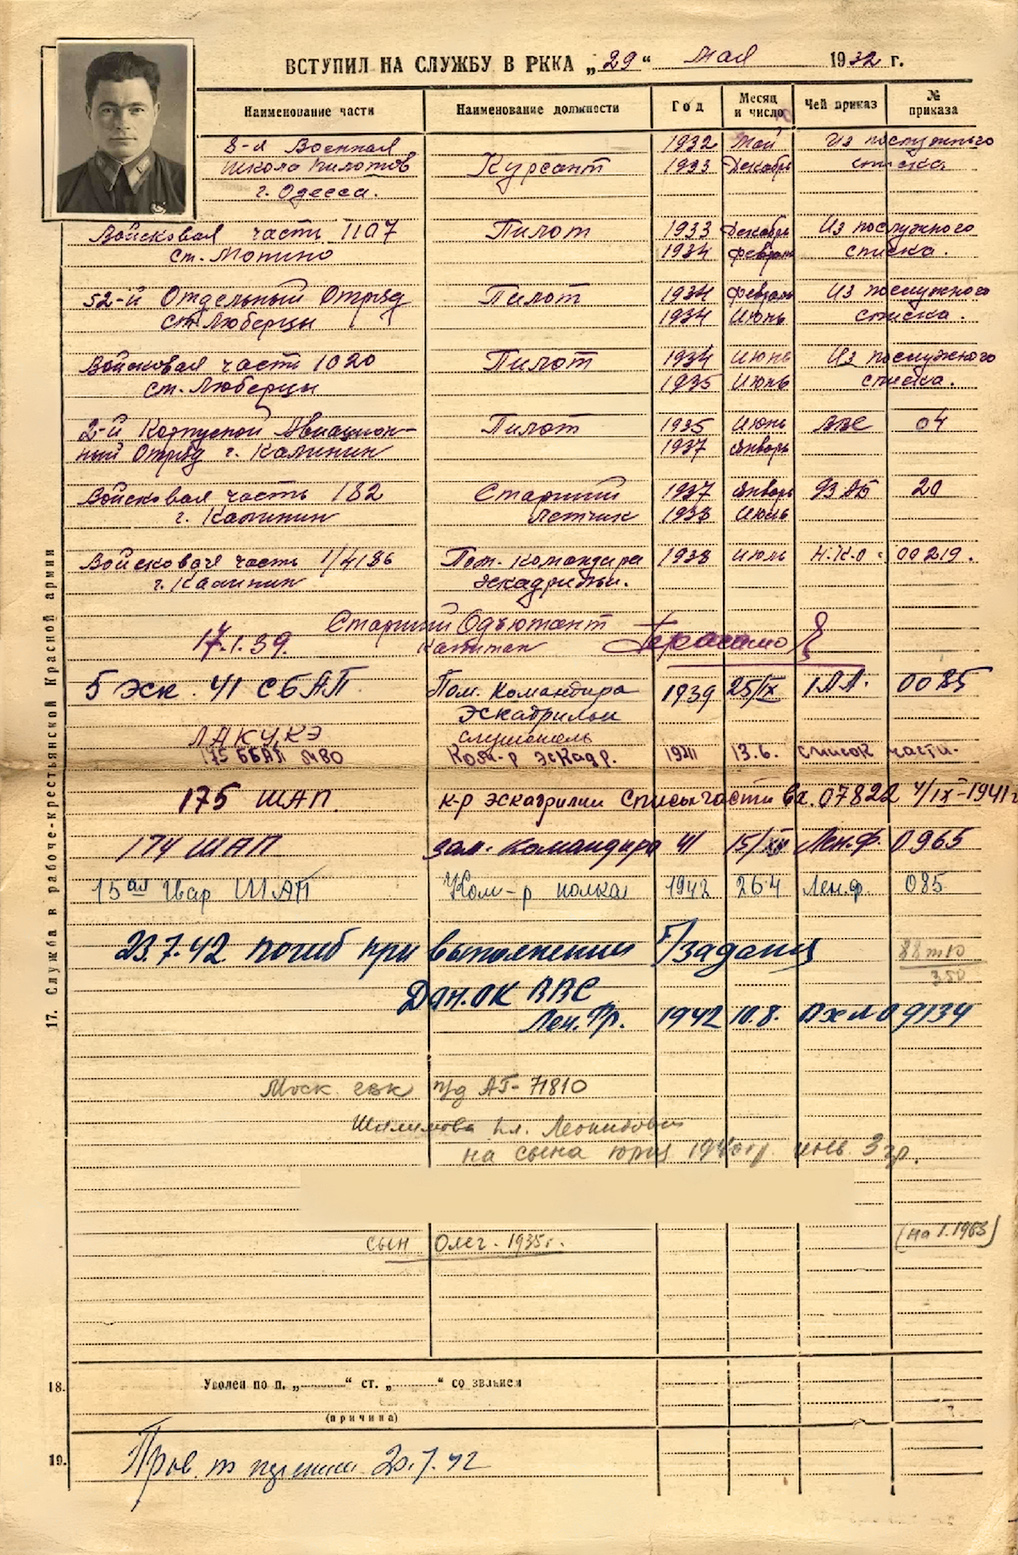 ВСТУПИЛ НА СЛУЖБУ В РККА „29“ Мая 1932 г.
Наименование части Наименование должности Год Месяц и число Чей приказ № приказа
8-я Военная 1932 Май Из послужного
школа пилотов Курсант 1933 Декабрь списка.
г. Одесса.
Войсковая часть 1107 Пилот 1933 Декабрь Из послужного
ст. Монино 1934 февраль списка.
52-й Отдельный Отряд Пилот 1934 февраль Из послужного
ст. Люберцы 1934 Июнь списка.
Войсковая часть 1020 Пилот 1934 Июнь Из послужного
ст. Люберцы 1935 Июнь списка.
2-й Корпусной Авиацион- Пилот 1935 Июнь ВВС 04
ный Отряд г. Калинин 1937 Январь
Войсковая часть 182 Старший 1937 Январь 20
г. Калинин Летчик 1938 Июль
Войсковая часть Пом. Командира 1938 Июль Н.К.О. 00219.
г. Калинин Эскадрильи.
Старший Адъютант
17.1.39. Капитан
5 Эск. 41 СБАП Пом. Командира 1939 25/IX 0085
Эскадрильи
ЛАКУКЭ слушатель
175 ББАП Ком-р эскадр. 1941 13.6. Список части.
175 ШАП к-р эскадрилии Список части Вх. 07822 4/IX-1941г
174 ШАП Зам. Командира 41 Лен.ф. 0965
15ый Гвар ШАП Ком-р полка 1942 26 4 Лен.ф. 085
23.7.42 погиб при выполнении б/задания
Дон. ОК ВВС
Лен. Фр. 1942 10.8. Вх 09134
Моск. гвк п/д АГ-71810
на сына инв. 3 гр.
сын Олег - 1935г. (на 1.1963)
17. Служба в рабоче-крестьянской Красной армии
18. Уволен по п. „ “ ст. „ “ со званием
(причина)
19.